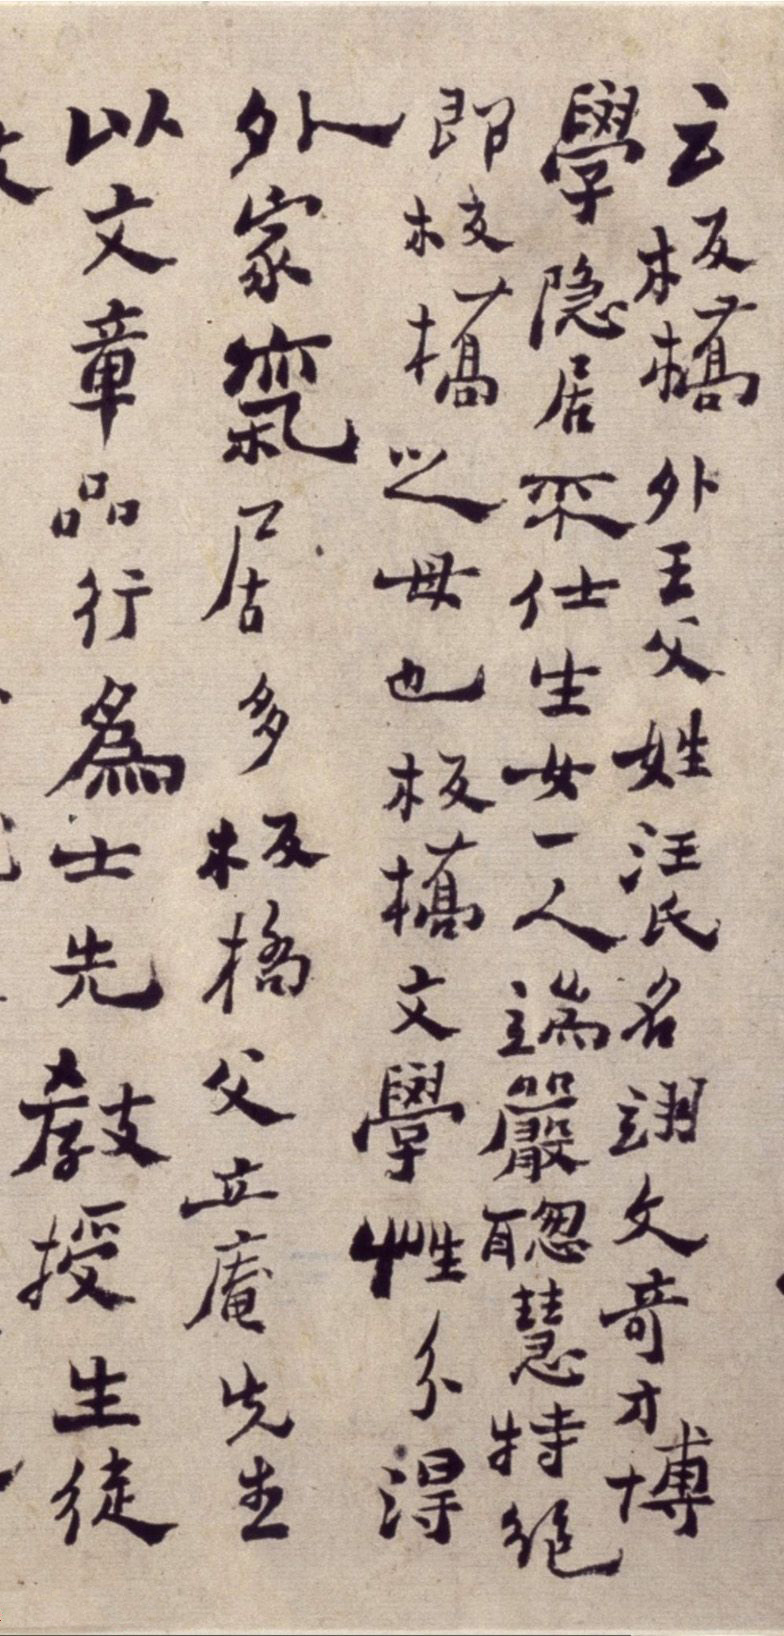 云板橋外王父姓汪氏名翊文奇才博
學隐居不仕生女一人端嚴聰慧特絶
即板橋之母也板橋文學性分得
外家氣居多板橋父立庵先生
以文章品行為士先教授生徒